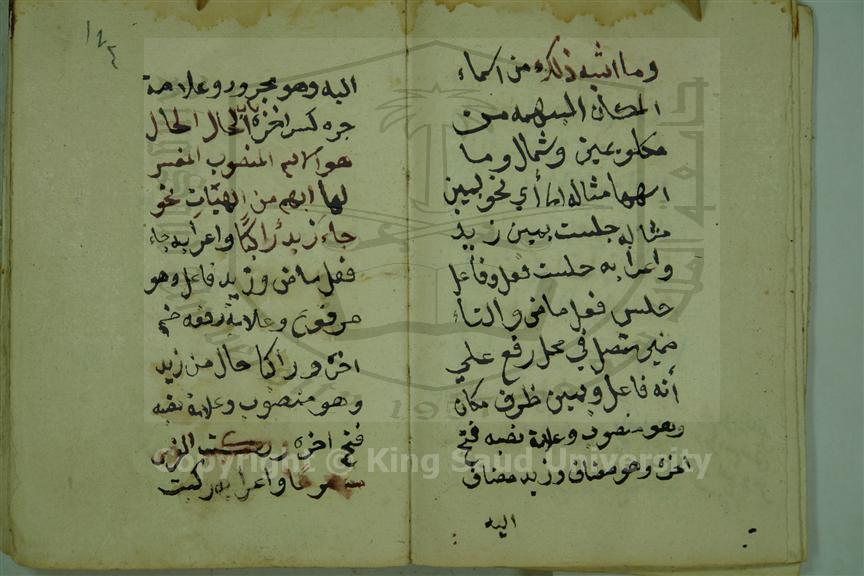 وما اشبه ذلك من اسماء
المكان المبهمه من
يمين وشمال وما
مثاله نحو يمين
مثاله جلست يمين زيد
واعرابه جلست فعل وفاعل
جلس فعل ماض والتاء
ضمير متصل في محل رفع علي
أنه فاعل ويمين ظرف مكان
وهو منصوب وعلامة نصبه فتح
اخره وهو مضاف وزيد مضاف
اليه
اليه وهو مجرور وعلامة
جره كسر اخره الحال الحال
هو الاسم المنصوب المفسر
لما ابهم من الهيّات نحو
جاء زيد راكبًا واعرابه جاء
فعل ماض وزيد فاعل وهو
مرفوع وعلامة رفعه ضم
اخره وراكبا حال من زيد
وهو منصوب وعلامة نصبه
فتح اخره وركبت الفرس
واعرابه ركبت
Copyright © King Saud University